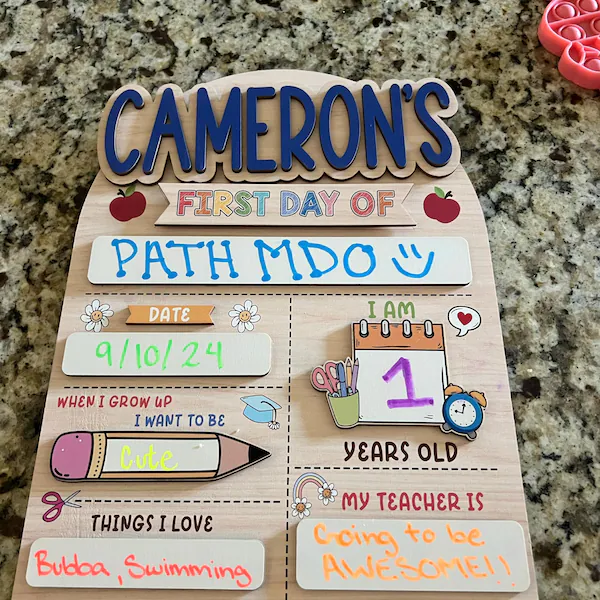 CAMERON'S
FIRST DAY OF
PATH MDO
DATE
9/10/24
I AM
1
YEARS OLD
WHEN I GROW UP
I WANT TO BE
Cute
THINGS I LOVE
Bubba, Swimming
MY TEACHER IS
Going to be
AWESOME!!